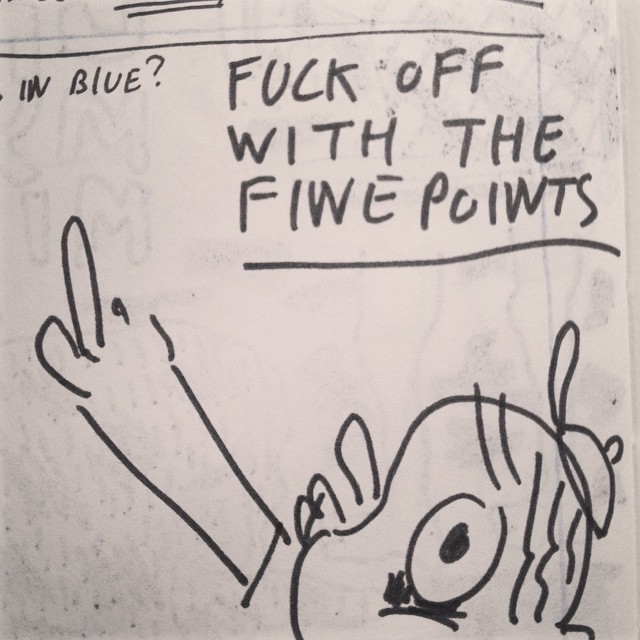 IN BLUE?
FUCK OFF
WITH THE
FINE POINTS